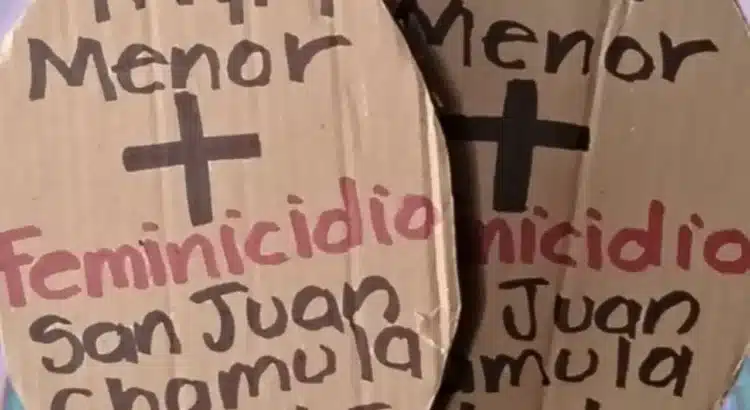 Menor
Feminicidio
San Juan
chamula
Menor
nicidio
Juan
mula